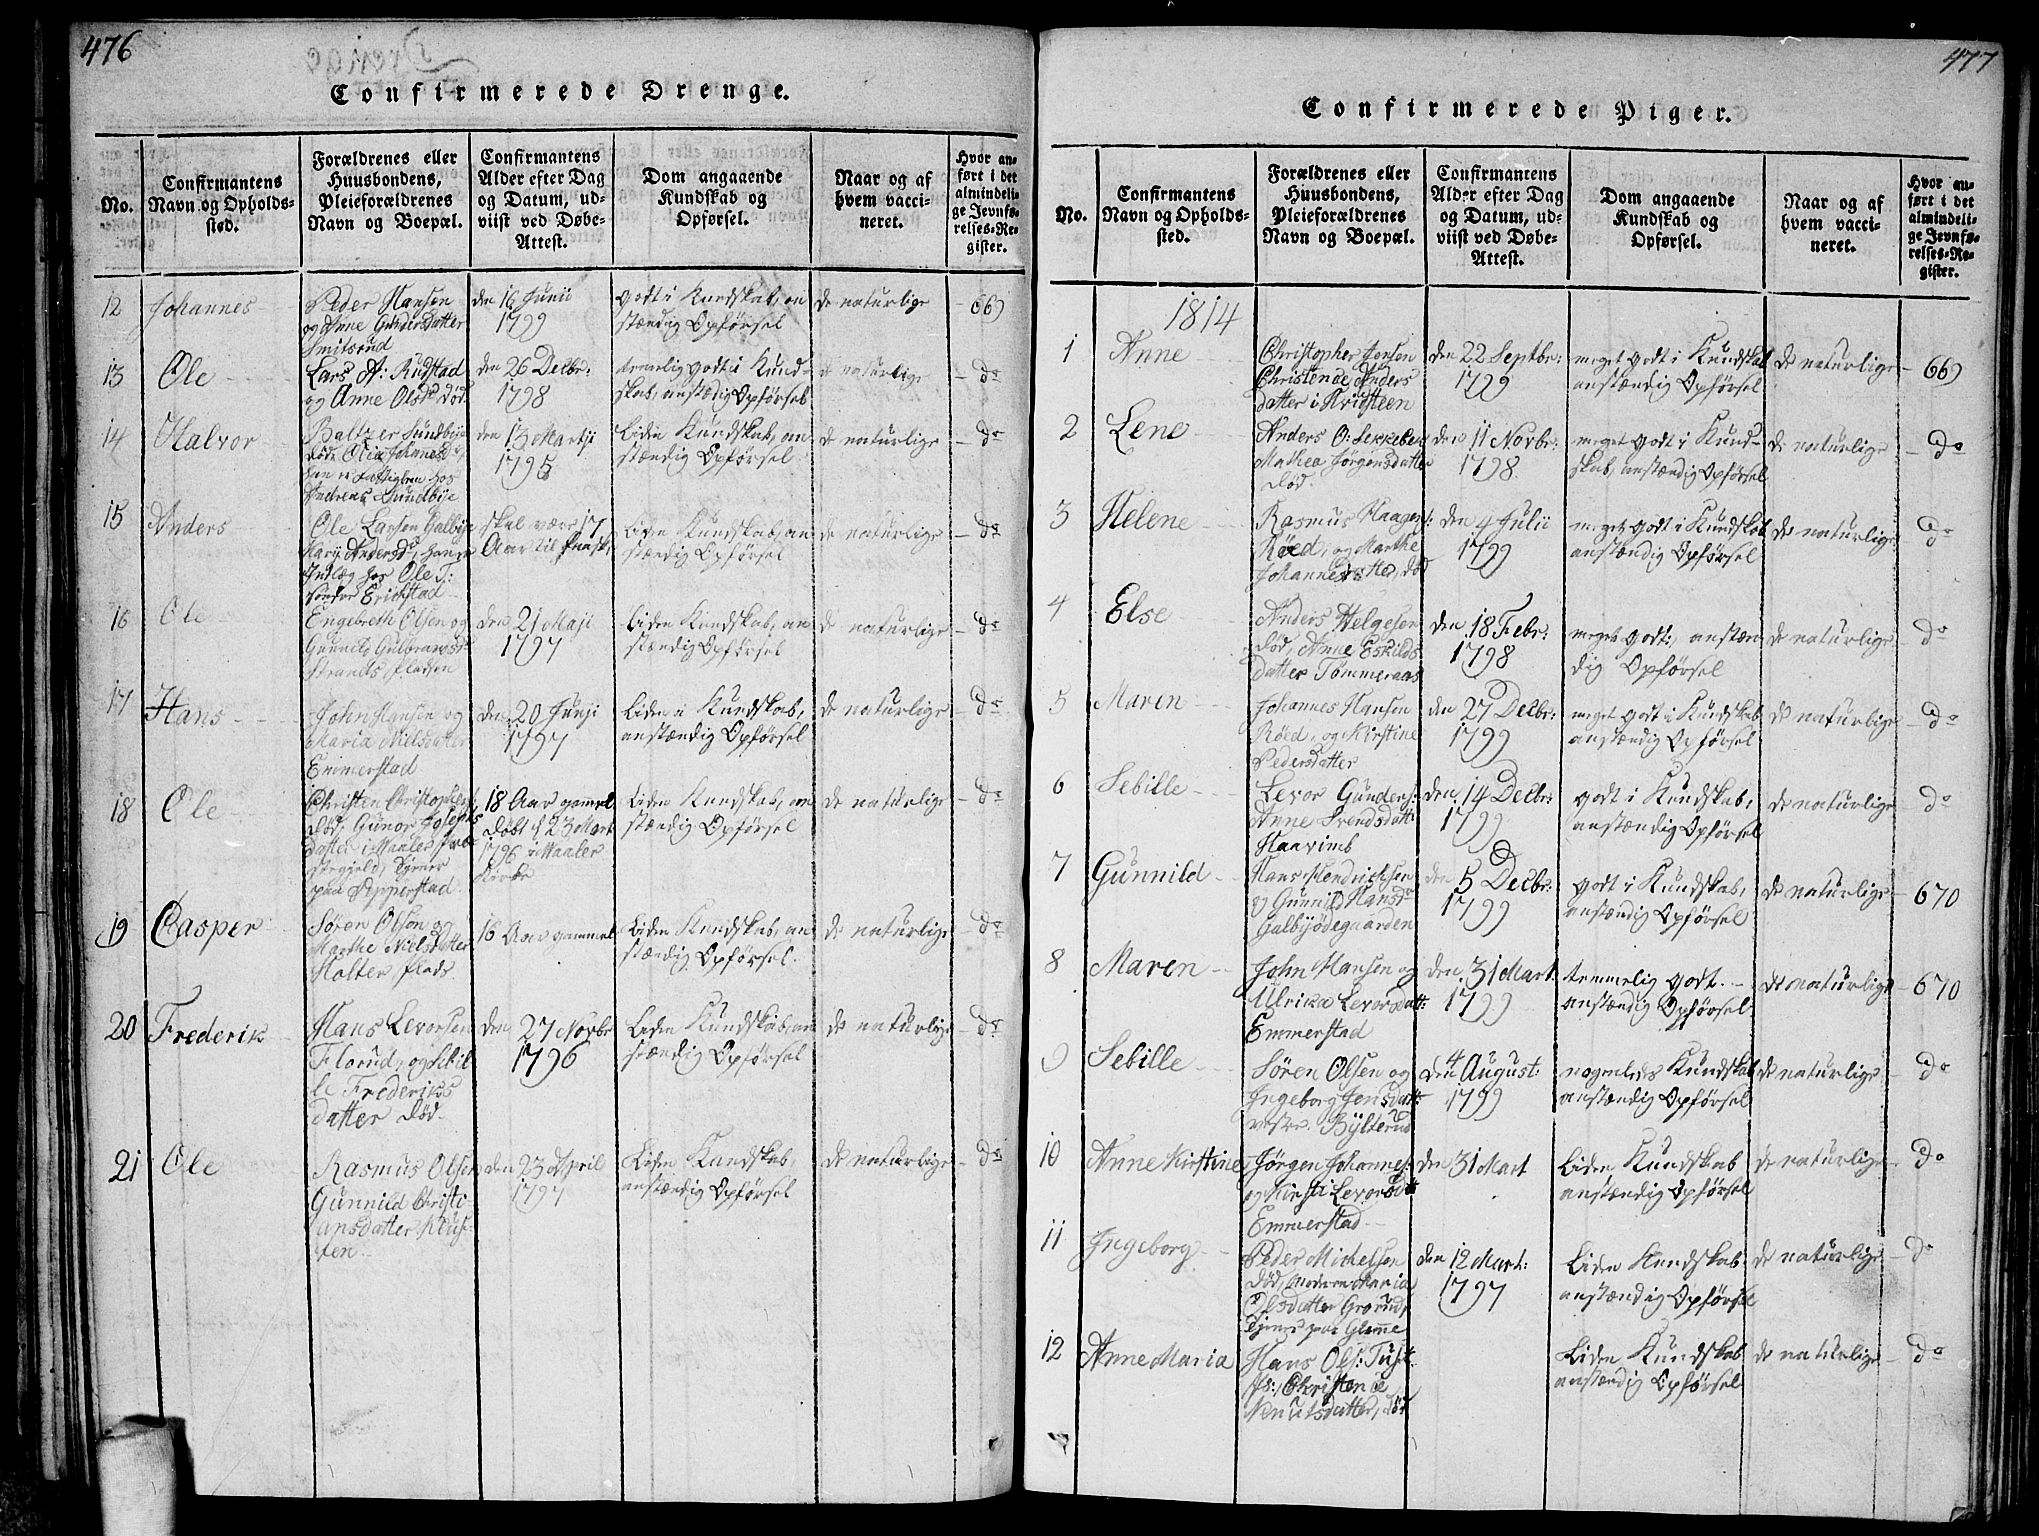 476
Confirmerede Drenge.
No.
Confirmantens
Navn og Opholds-
sted.
Forældrenes eller
Huusbondens,
Pleieforældrenes
Navn og Boepæl.
Confirmantens
Alder efter Dag
og Datum, ud-
viist ved Døbe-
Attest.
Dom angaaende
Kundskab og
Opførsel.
Naar og af
hvem vacci-
neret.
Hvor an-
ført i det
almindeli-
ge Jevnfø-
relses-Re-
gister.
12
Johannes
Peder Hansen
og Anne Gundersdatter
Smitsrud
den 16 Junii
1799
godt i Kundskab, an
stændig Opførsel
de naturlige
669
13
Ole
Lars A: Rustad
og Anne Olsd: død.
den 26 Decbr:
1798
temmelig godt i Kund-
skab, anstændig Opførsel
de naturlige
do
14
Halvor
Baltzer Sundbye
død, Olia Johannesd:
han er Fattigbarn hos
Andreas Sundbye
den 13 Martii
1795
Liden Kundskab, an
stændig Opførsel
de naturlige
do
15
Anders
Ole Larsen Galbye
Mari Andersd:, han er
Indlæg hos Ole T:
Erichstad
skal være 17
Aar til
Liden Kundskab, an
stændig Opførsel
de naturlige
do
16
Ole
Engebreth Olsen og
Gunnild Gulbransd:
Strands Pladsen
den 21 Maji
1797
Liden Kundskab, an
stændig Opførsel
de naturlige
do
17
Hans
John Hansen og
Maria Nielsdatter
Emmerstad
den 20 Junji
1797
Liden Kundskab,
anstændig Opførsel
de naturlige
do
18
Ole
Christen Christophers:
død, Gunor Josephs
datter i Maaler Præ
stegjeld, tjener
paa Apperstad
18 Aar gammel
døbt d 23 Mart
1796 i Maaler
Kirke
Liden Kundskab, an
stændig Opførsel
de naturlige
do
19
Casper
Søren Olsen og
Marthe Nielsdatter
Holter plads
16 Aar gammel
Liden Kundskab, an
stændig Opførsel.
de naturlige
do
20
Frederik
Hans Levorsen
Florud, og Sebil
le Frederiks
datter død.
den 27 Novbr
1796
Liden Kundskab, an
stændig Opførsel
de naturlige
do
21
Ole
Rasmus Olsen
Gunnild Christi
ansdatter Klus
ten
den 23 April
1797
Liden Kundskab,
anstændig Opførsel
de naturlige
do
477
Confirmerede Piger.
No.
Confirmantens
Navn og Opholds-
sted.
Forældrenes eller
Huusbondens,
Pleieforældrenes
Navn og Boepæl.
Confirmantens
Alder efter Dag
og Datum, ud-
viist ved Døbe-
Attest.
Dom angaaende
Kundskab og
Opførsel.
Naar og af
hvem vacci-
neret.
Hvor an-
ført i det
almindeli-
ge Jevnfø-
relses-Re-
gister.
1814
1
Anne
Christopher Jensen
Christence Anders
datter i Hvidsteen
den 22 Septbr:
1799
meget godt i Kundskab
anstændig Opførsel
de naturlige
669
2
Lene
Anders O: Sekkebek
Mathea Jørgensdatter
død.
den 11 Novbr:
1798.
meget godt i Kund-
skab, anstændig Opførsel
de naturlige
do
3
Helene
Rasmus Haagens:
Røed, og Marthe
Johannesdatter, død
den 4 Julii
1799
meget godt i Kundskab
anstændig Opførsel
de naturlige
do
4
Else
Anders Helgesen
død, Anne Eskilds
datter Tømmeraas
den 18 Febr:
1798
meget godt, anstæn
dig Opførsel
de naturlige
do
5
Maren
Johannes Hansen
Røed, og Kirstine
Pedersdatter
den 27 Decbr:
1799
meget godt i Kundskab
anstændig Opførsel
de naturlige
do
6
Sebille
Levor Gunders:
Anne Svendsdatt:
Haavimb
den 14 Decbr:
1799
godt i Kundskab,
anstændig Opførsel
de naturlige
do
7
Gunnild
Hans Hendrichsen
og Gunnild Hansd:
Galbyødegaarden
den 5 Decbr:
1799
godt i Kundskab,
anstændig Opførsel
de naturlige
670
8
Maren
John Hansen og
Ulrika Levorsdatt:
Emmerstad
den 31 Mart
1799
temmelig godt.
anstændig Opførsel
de naturlige
670
9
Sebille
Søren Olsen og
Ingeborg Jensdatt:
vestre Bylterud
den 4 August:
1799
nogenledes Kundskab
anstændig Opførsel
de naturlige
do
10
Anne Kirstine
Jørgen Johannes:
og Kirsti Levorsdt
Emmerstad
den 31 Mart
Liden Kundskab
anstændig Opførsel
de naturlige
do
11
Ingeborg
Peder Michelsen
død, moderen Maria
Olsdatter Grorud,
tjener paa Glenne
den 12 Mart:
1797
Liden Kundskab
anstændig Opførsel
de naturlige
do
12
Anne Maria
Hans Ols:
Christence
Knutsdatter, død
Liden Kundskab
anstændig Opførsel
de naturlige
do